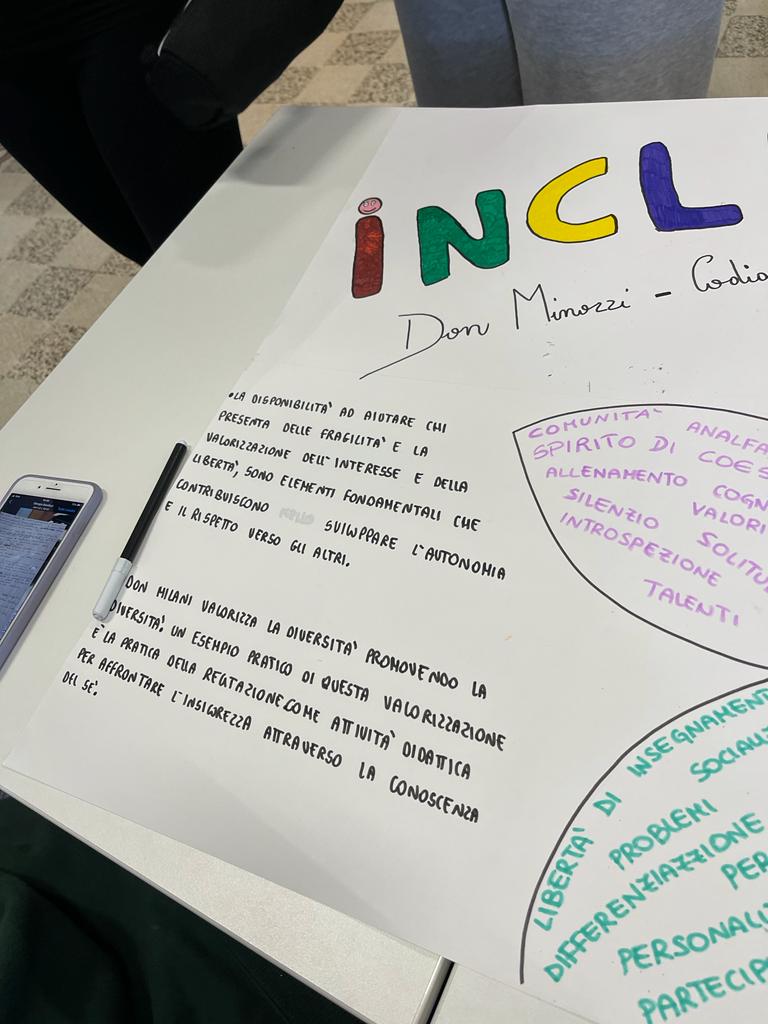 iNCL
Don Minozzi - Codi
• LA DISPONIBILITÀ AD AIUTARE CHI
PRESENTA DELLE FRAGILITÀ E LA
VALORIZZAZIONE DELL'INTERESSE E DELLA
LIBERTÀ, SONO ELEMENTI FONDAMENTALI CHE
CONTRIBUISCONO SVILUPPARE L'AUTONOMIA
E IL RISPETTO VERSO GLI ALTRI.
DON MILANI VALORIZZA LA DIVERSITÀ PROMOVENDO LA
DIVERSITÀ. UN ESEMPIO PRATICO DI QUESTA VALORIZZAZIONE
È LA PRATICA DELLA RECITAZIONE COME ATTIVITÀ DIDATTICA
PER AFFRONTARE L'INSICUREZZA ATTRAVERSO LA CONOSCENZA
DEL SÉ.
COMUNITÀ ANALFA
SPIRITO DI COES
ALLENAMENTO COGN
SILENZIO VALORI
INTROSPEZIONE SOLITU
TALENTI
LIBERTÀ DI INSEGNAMENT
SOCIALI
PROBLEMI
DIFFERENZIAZZIONE
PER
PERSONALI
PARTECIP